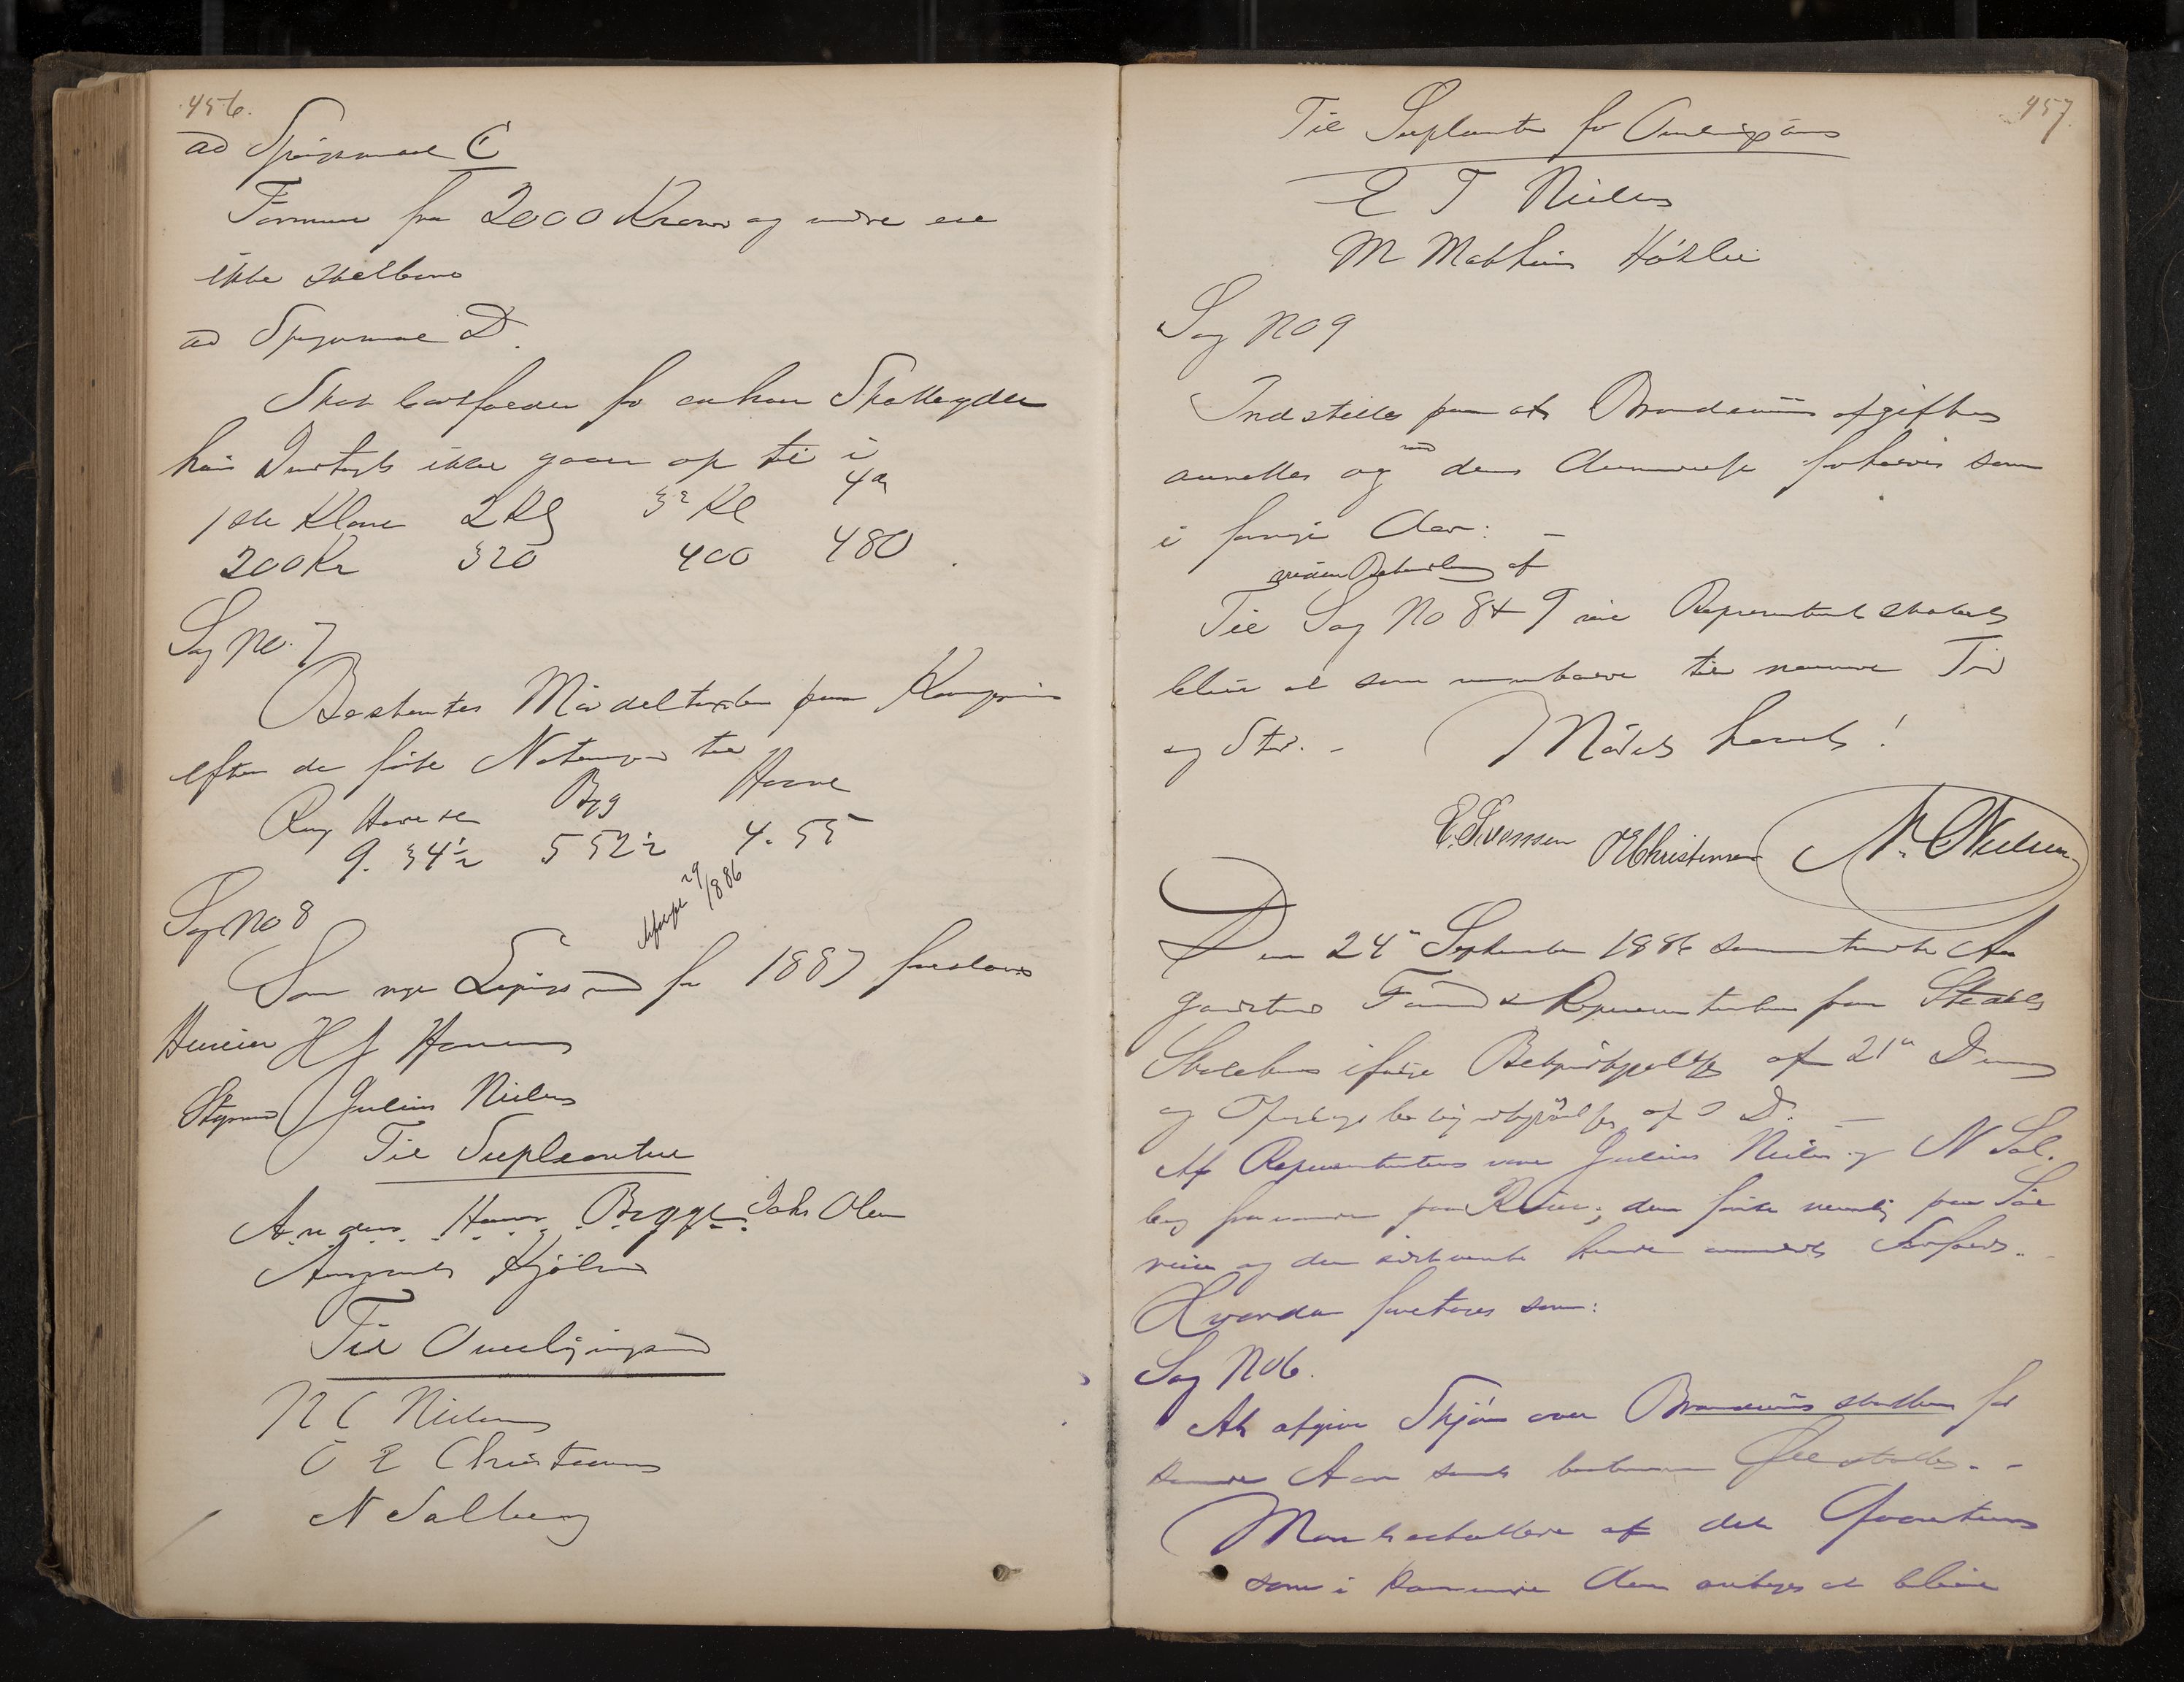 456.
ad Spørgsmaal C
Formue fra 2000 Kroner og mindre ere
ikke skatbare
ad Spørgsmaal D.
Skat bortfalder for enhver Skatteyder
hvis Indtægt ikke gaar op til i
1ste Klasse 2 Kl 3de Kl 4de
200 Kr 320 400 480.
Sag No. 7
Bestemtes Middeltaxten paa Kornpriser
efter de sidste Noteringer til
Rug Havre Byg Havre
9. 34½ 5 52½ 4. 55
Sag No 8
29/1886
Som nye Ligningsmænd for 1887 foreslaaes
H J Hansen
Julius Nielsen
Til Supleanter
Anders Hans. Brygge. Johs Olsen
August Kjölner
Til Overligningsmænd
N C Nielsen
O E Christensen
N Solberg
457
Til Supleanter for Overligningsmænd
E T Nielsen
M Mathias
Sag No 9
Indstilles paa at Brændeviinsafgiften
ansættes og med dens Anvendelse forholdes som
i forrige Aar:
videre Behandling af
Til Sag No 8 & 9 vil Representantskabet
blive at sammenkalde til nærmere Tid
og Sted. - Mödet hævet!
E. Svensen OEChristensen N. C Nielsen
Den 24de September 1886 sammentraadte Aas-
gaardstrands Formænd & Representanter paa Stedets
Skolehus ifölge Bekjendtgjörelse af 21de Dennes
og Opslags bekjendtgjörelse af s D. -
Af Representanterne vare Julius Nielsen og N Sol-
berg fraværende paa Reiser, den förste nemlig paa Sö-
reise og den sidstnævnte havde anmeldt Forfald. -
Hvordan foretages som:
Sag No 6.
At afgive Skjön over Brændeviinshandlen for
kommende Aar samt bestemme Ølhandlen. -
Man besluttede at det Qvantum
som i kommende Aar antages at blive